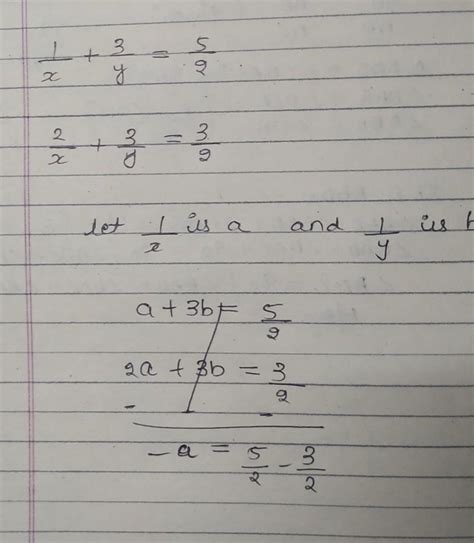 1/x + 3/y = 5/2
2/x + 3/y = 3/2
let 1/x is a and 1/y is
a + 3b = 5/2
2a + 3b = 3/2
- -
-a = 5/2 - 3/2